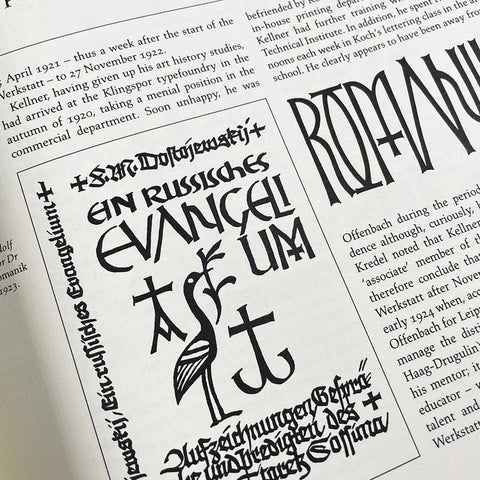 April 1921 – thus a week after the start of the
Werkstatt – to 27 November 1922.
Kellner, having given up his art history studies,
had arrived at the Klingspor typefoundry in the
autumn of 1920, taking a menial position in the
commercial department. Soon unhappy, he was
befriended by
in-house printing depar
Kellner had further training w
Technical Institute. In addition, he spent
noons each week in Koch's lettering class in the a
school. He clearly appears to have been away from
ROMANU
dolf
or Dr
omanik
1923.
Ein russisches Evangelium
F. M. Dostojewskij
EIN RUSSISCHES
EVANGELI
UM
Aufzeichnungen Gesprä
che und Predigten des
Staretz Sossima
Offenbach during the period
dence although, curiously, h
Kredel noted that Kellner
'associate' member of th
therefore conclude tha
Werkstatt after Novem
early 1924 when, acco
Offenbach for Leip
manage the disti
Haag-Drugulin
his mentor; it
educator – w
talent and
Werkstatt